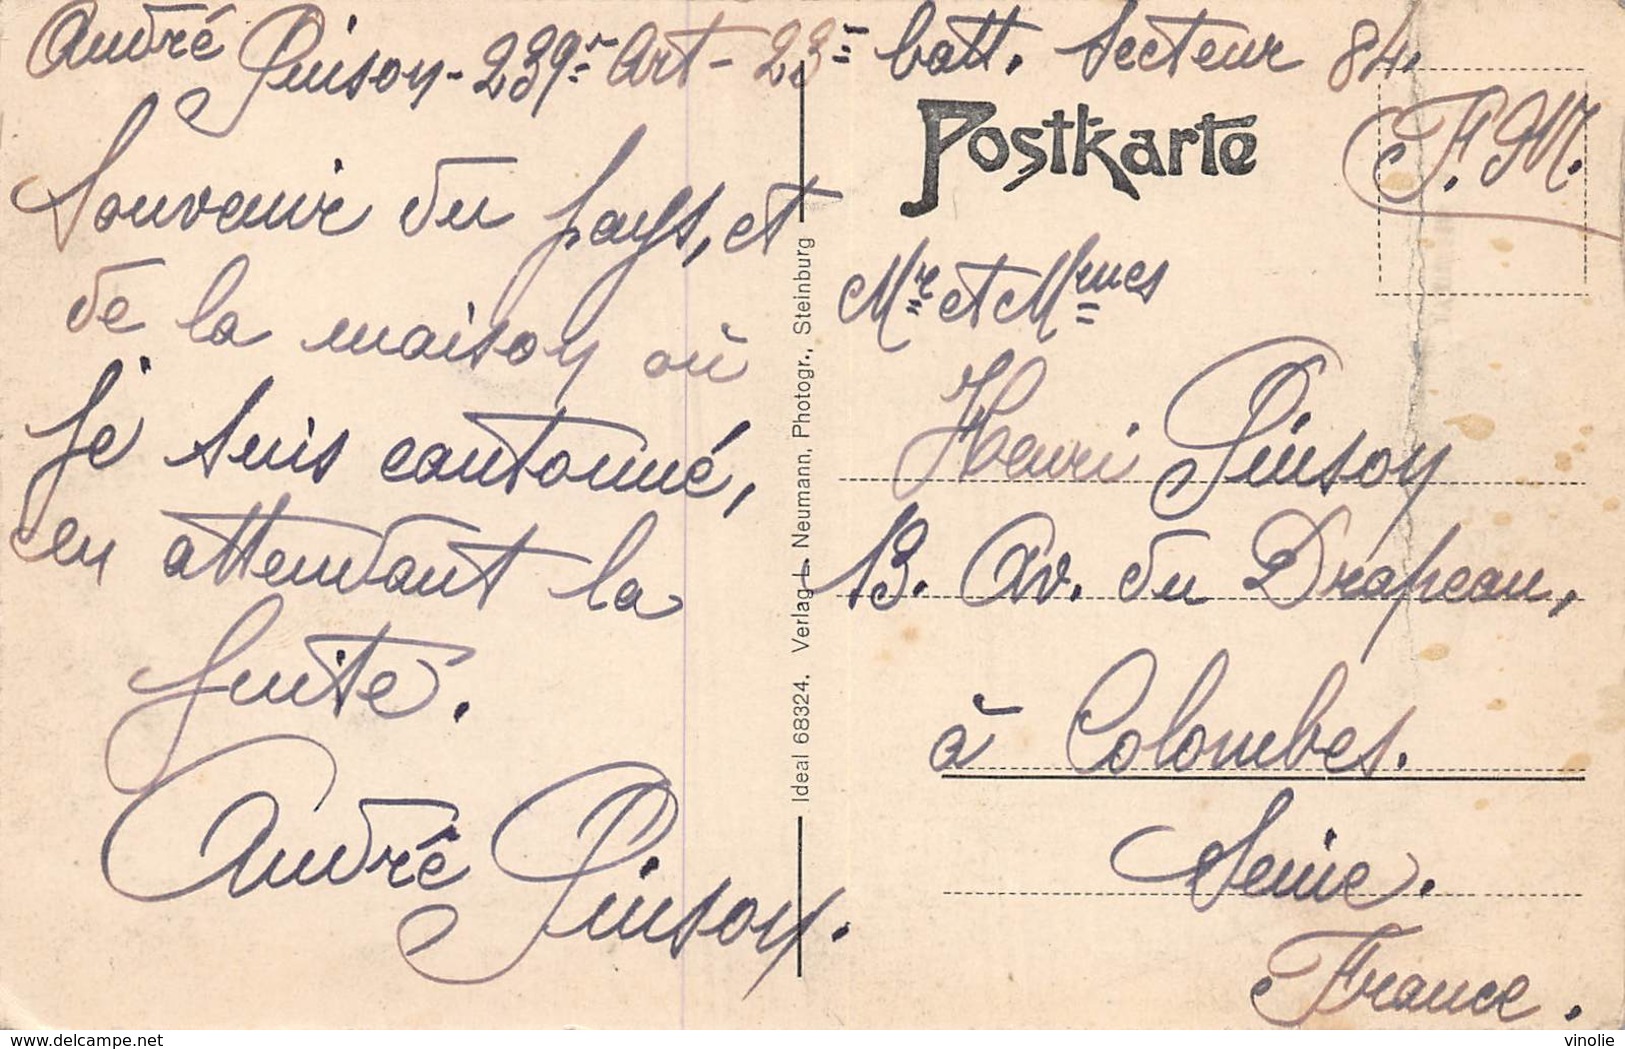 André Pinson - 239e Art - 23e batt. Secteur 84.
Postkarte
F. M.
Souvenir du pays, et
de la maison où
je suis cantonné,
en attendant la
suite.
André Pinson.
Ideal 68324. Verlag L. Neumann, Photogr., Steinburg
Mr et Mmes
Henri Pinson
13. Av. du Drapeau,
à Colombes.
Seine.
France.
delcampe.net
vinolie